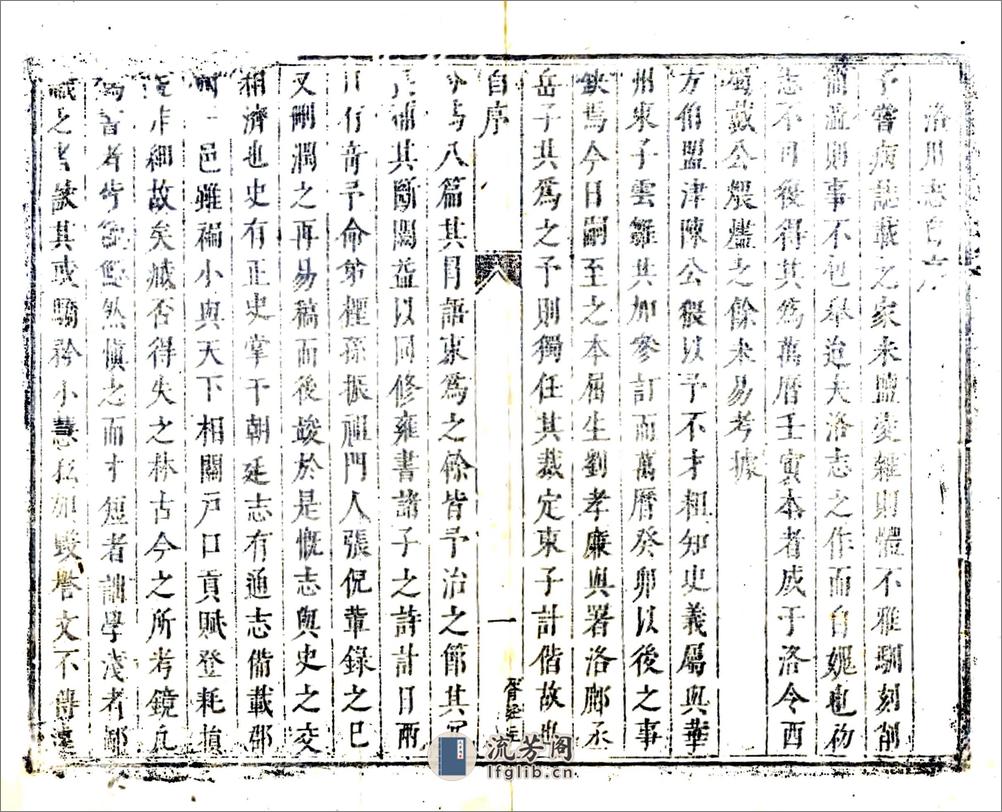 洛川志自序
予嘗病誌載之家未盬雯雜則體不雅馴刻削
簡澁則事不包舉迨夫洛志之作而自媿也初
志不可後得其爲萬曆壬寅本者成于洛令西
蜀戴公煨燼之餘未易考據
方伯盟津陳公猥以予不才粗知史義屬與華
州東子雲雛共加參訂而萬曆癸卯以後之事
缺焉今日嗣至之本屬生劉孝廉與署洛鄜丞
岳子共爲之予則獨任其裁定東子計偕故也
自序
一
今志八篇其月語東爲之餘皆予治之節其冗
長補其斷闕益以同修雍書諸子之詩計日兩
月有竒予命弟檉孫振祖門人張倪輩錄之已
又刪潤之再易稿而後竣於是慨志與史之交
相濟也史有正史掌于朝廷志有通志備載郡
一邑雖褊小與天下相關戶口貢賦登耗損
非細故矣臧否得失之林古今之所考鏡凡
爲者然愼之而才短者詘學淺者鄙
識之者缺其或驕矜小慧如毀譽文不傳遠
流芳閣
lfglib.cn